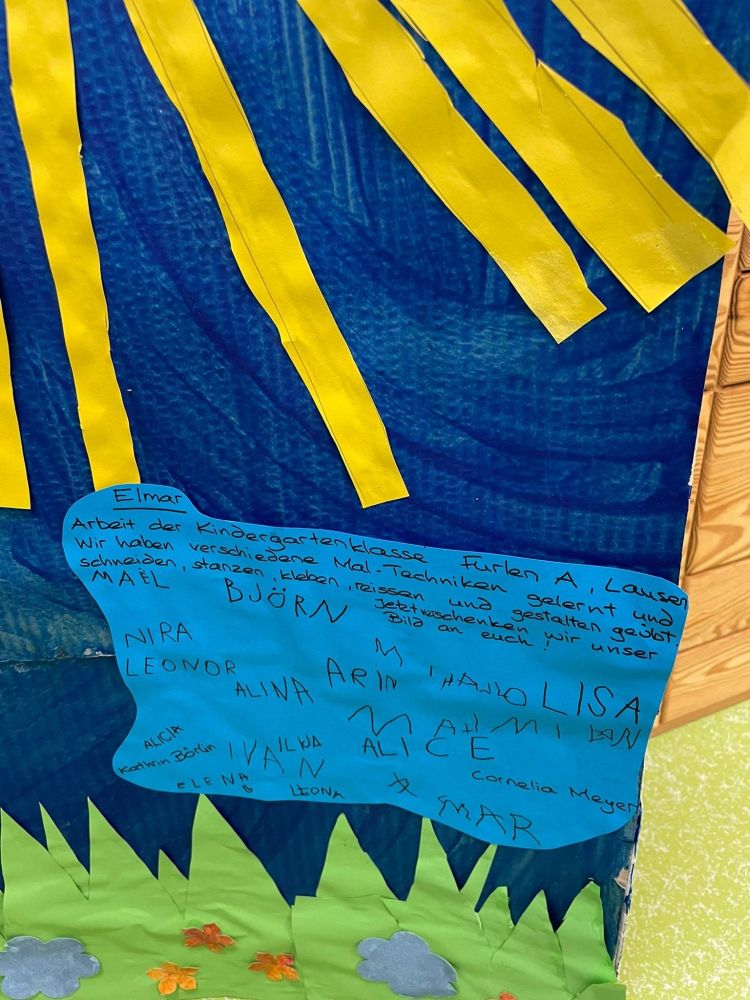 Elmar
Arbeit der Kindergartenklasse Furlen A, Lausen
Wir haben verschiedene Mal-Techniken gelernt und
schneiden, stanzen, kleben, reissen und gestalten geübt.
Jetzt verschenken wir unser
Bild an euch!
MAËL
BJÖRN
NIRA
LEONOR
ALINA
ARIN
LISA
ALICIA
Kathrin Börlin
IVAN
ALICE
ELENA
LEONA
Cornelia Meyer